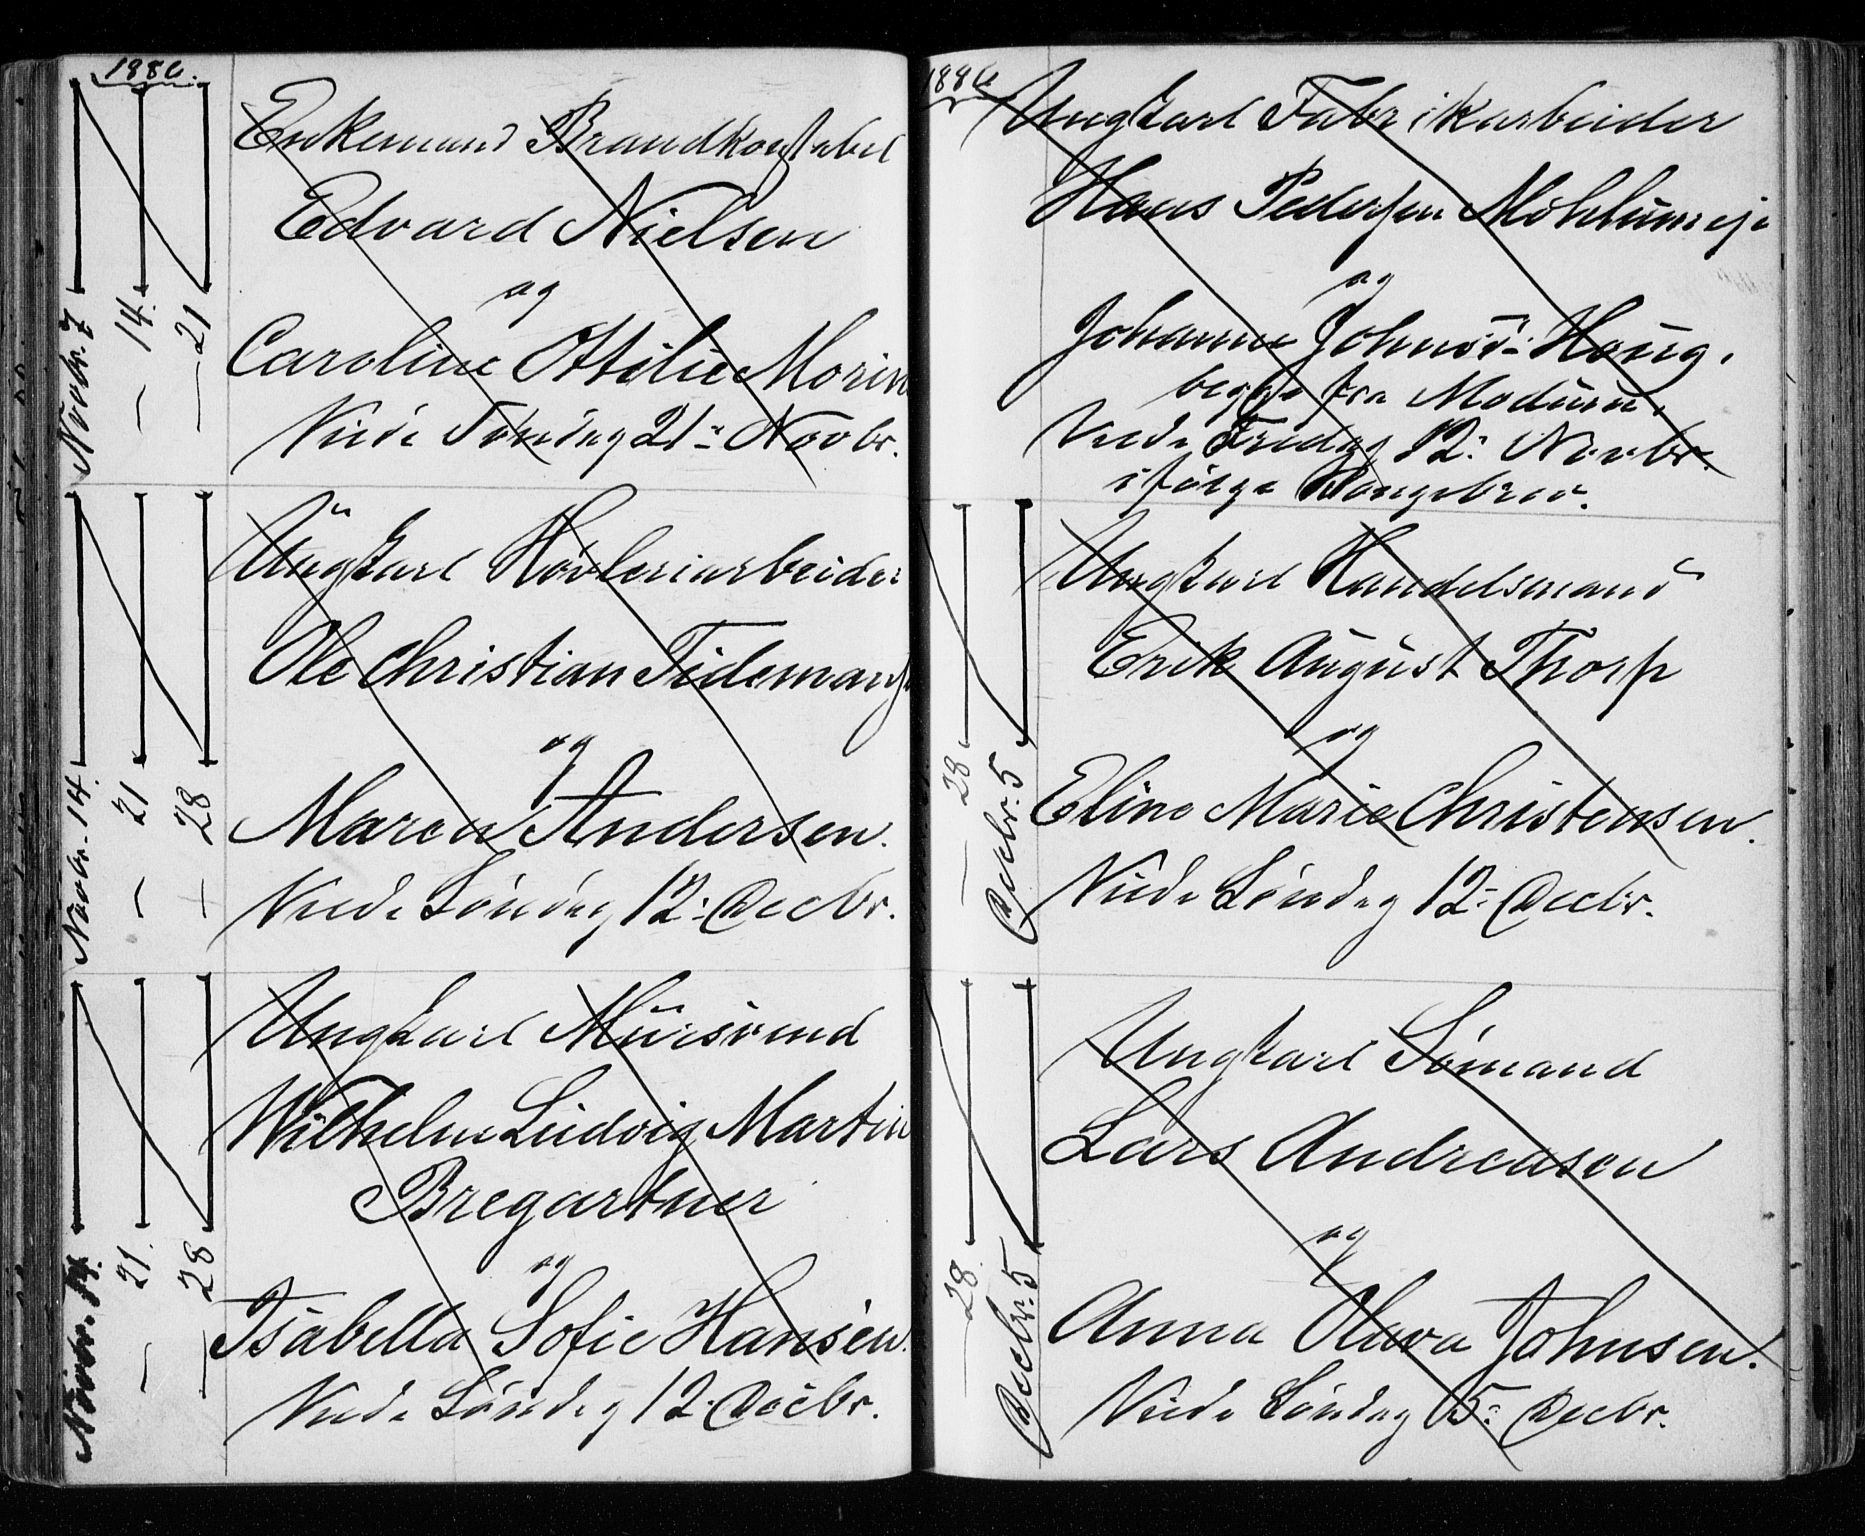 1886.
Enkemand Brandkonstabel
Edvard Nielsen
og
Caroline Ottilie Morin
Viede Søndag 21: Novbr.
Novbr. 7
— 14.
— 21
Ungkarl Høvleriarbeider
Ole Christian Tidemansen
og
Maren Andersen.
Viede Søndag 12: Decbr.
Novbr. 14.
— 21
— 28
Ungkarl Mursvend
Wilhelm Ludvig Martin
Bregartner
og
Isabella Sofie Hansen.
Viede Søndag 12. Decbr.
Novbr. 14.
— 21.
— 28
1886
Ungkarl Fabrikarbeider
Hans Pedersen
og
Johanne Johnsd: Haug.
begge fra Modum.
Viede Fredag 12: Novbr.
ifølge Kongebrev.
Ungkarl Handelsmand
Erik August Thorp
og
Eline Marie Christensen.
Viede Søndag 12: Decbr.
— 28
Decbr. 5
Ungkarl Sømand
Lars Andreasen
og
Anna Olava Johnsen.
Viede Søndag 5: Decbr.
— 28.
Decbr. 5